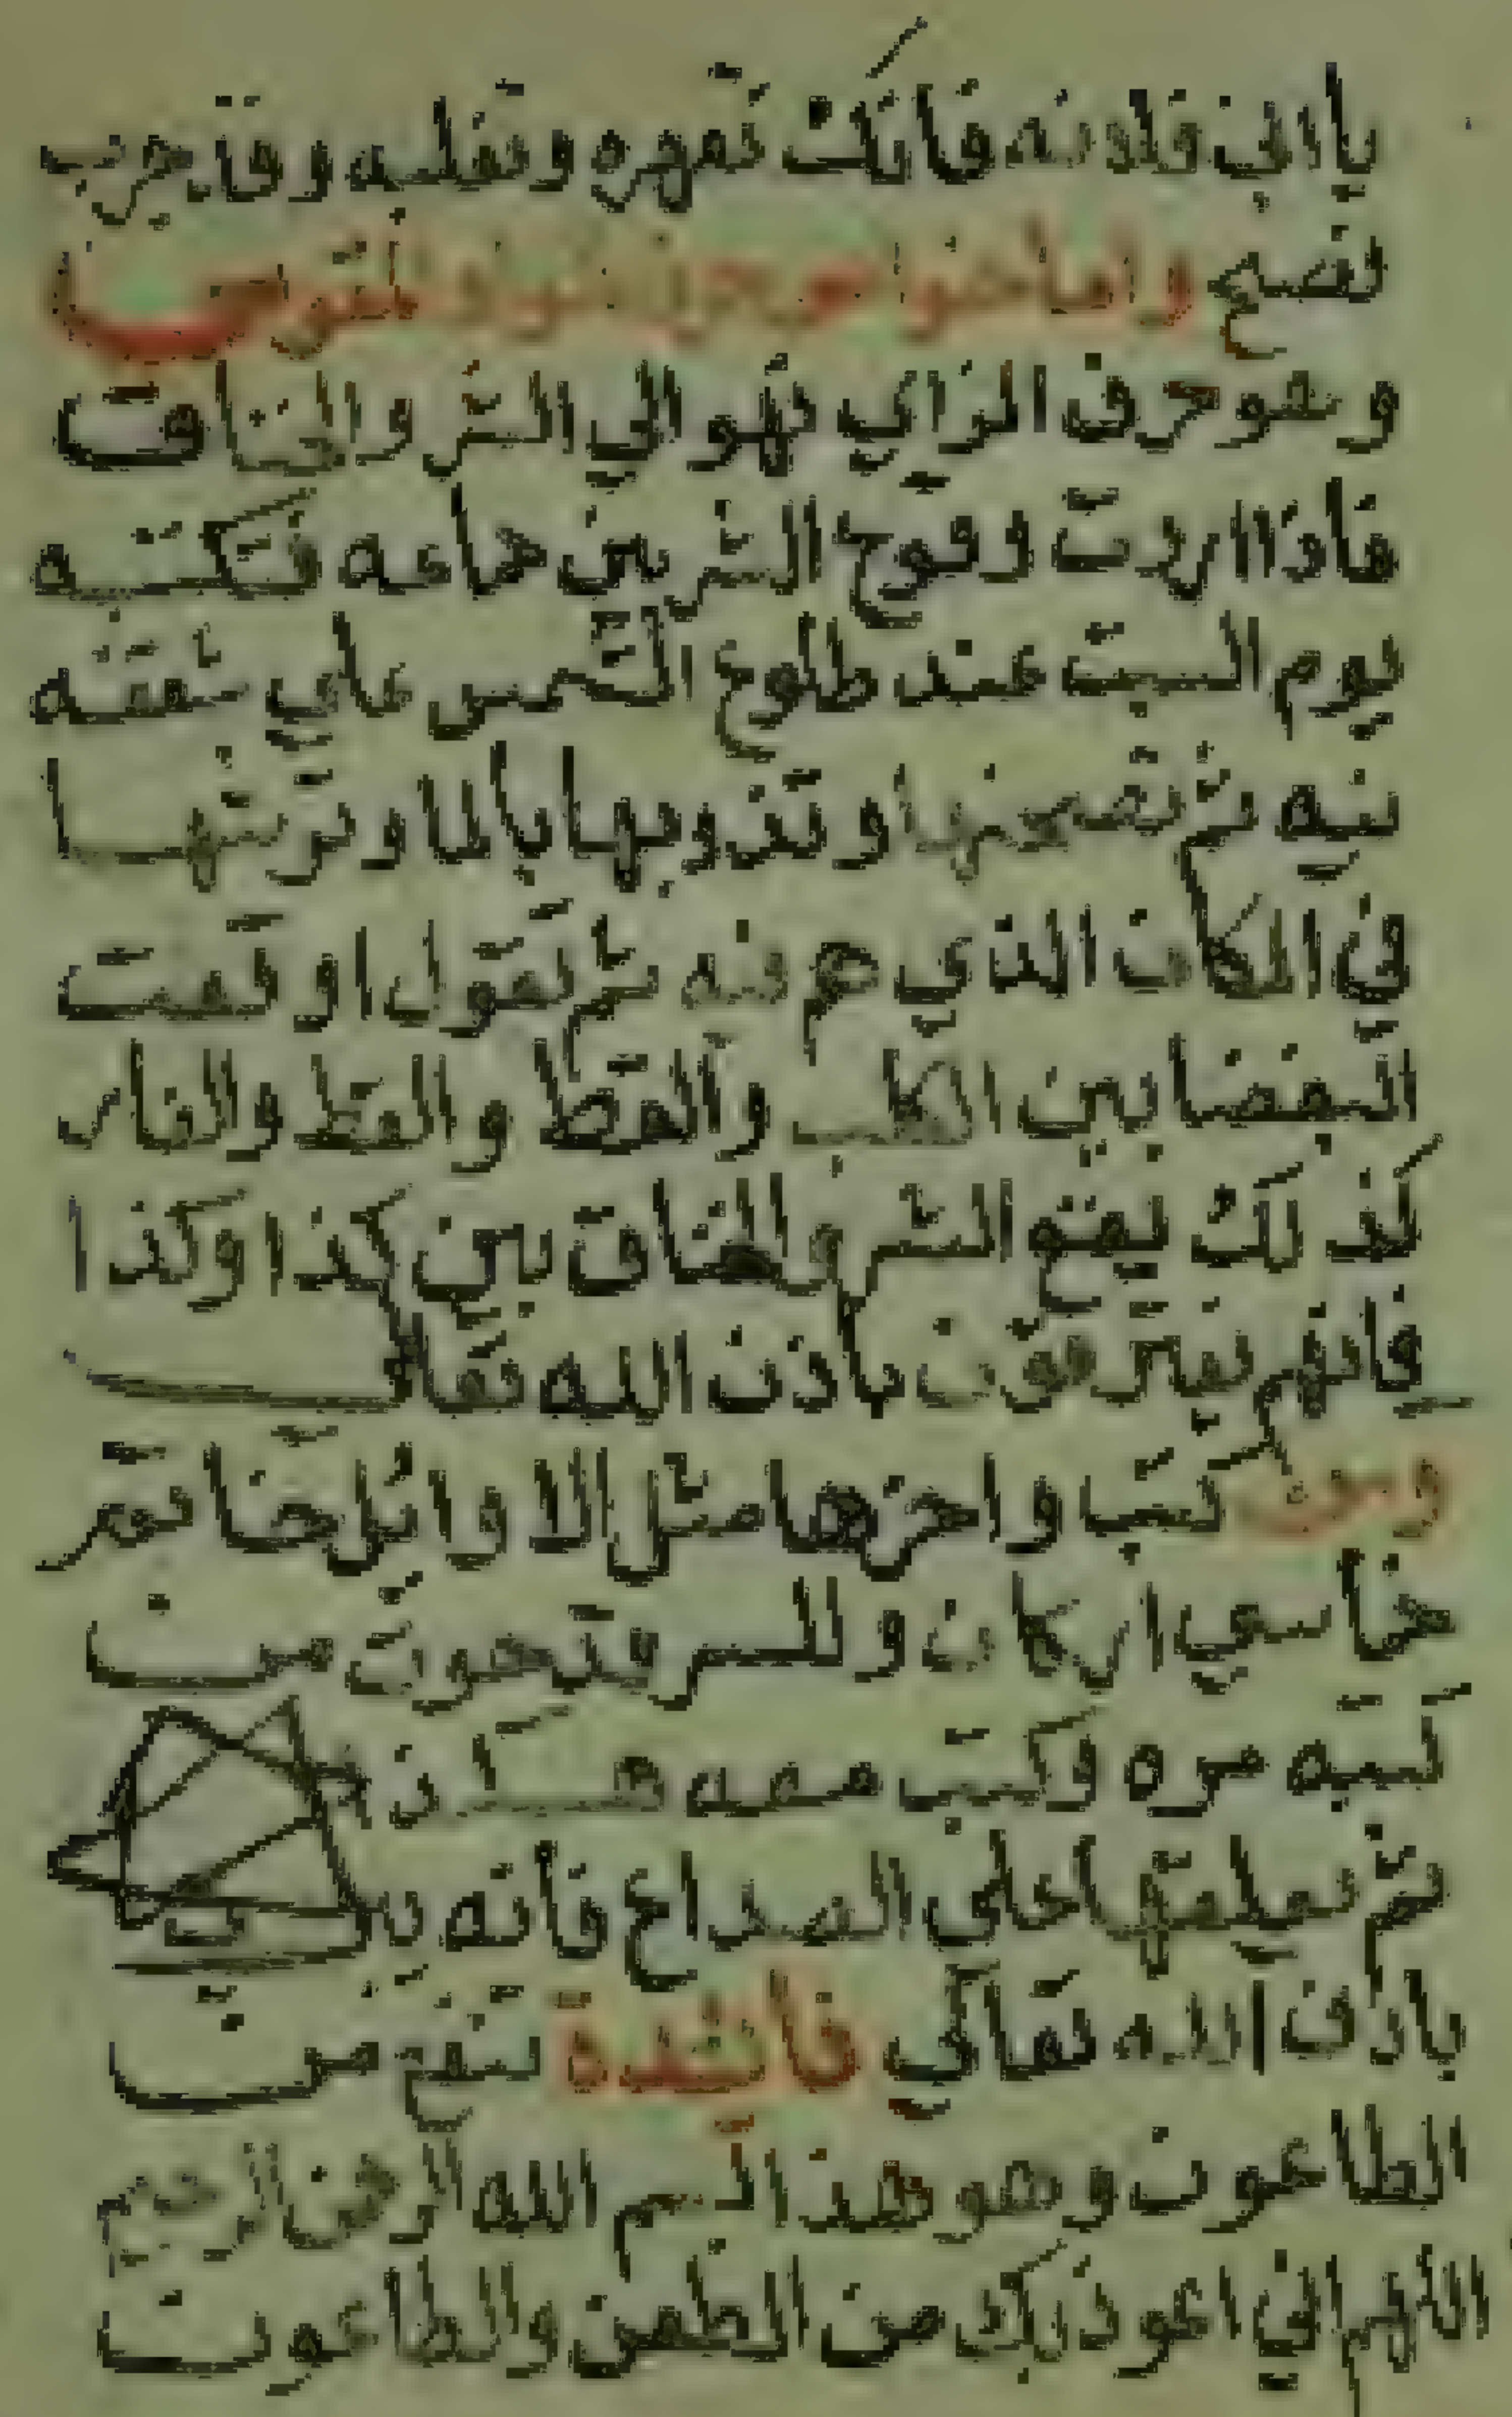 يا ابن فلانه فانك تقهره وتغلبه وقد جرب
فصح واما خواص حرف
وهو حرف الزاي فهو الي الشر والخناق
فاذا اردت وقوع الشر بين جماعه فتكتبه
يوم السبت عند طلوع الشمس علي شقفه
نيه ثم تصحنها وتذوبها بالما وترشها
في المكان الذي هم فيه ثم تقول اوقعت
البغضا بين الكلب والقط والقط والفار
كذلك يقع الشر والخناق بين كذا وكذا
فانهم يتفرقون باذن الله تعالي
ومن كتب واحزها مثل الاوايل خاتم
خماسي اركان وللسر يتحوت من
كتبه مره وكتب معه هكذا
ثم تعلقها علي الصداع فانه يبري
باذن الله تعالي فائدة تنفع من
الطاعون وهو هذا بسم الله الرحمن الرحيم
اللهم اني اعوذ بك من الطعن والطاعون